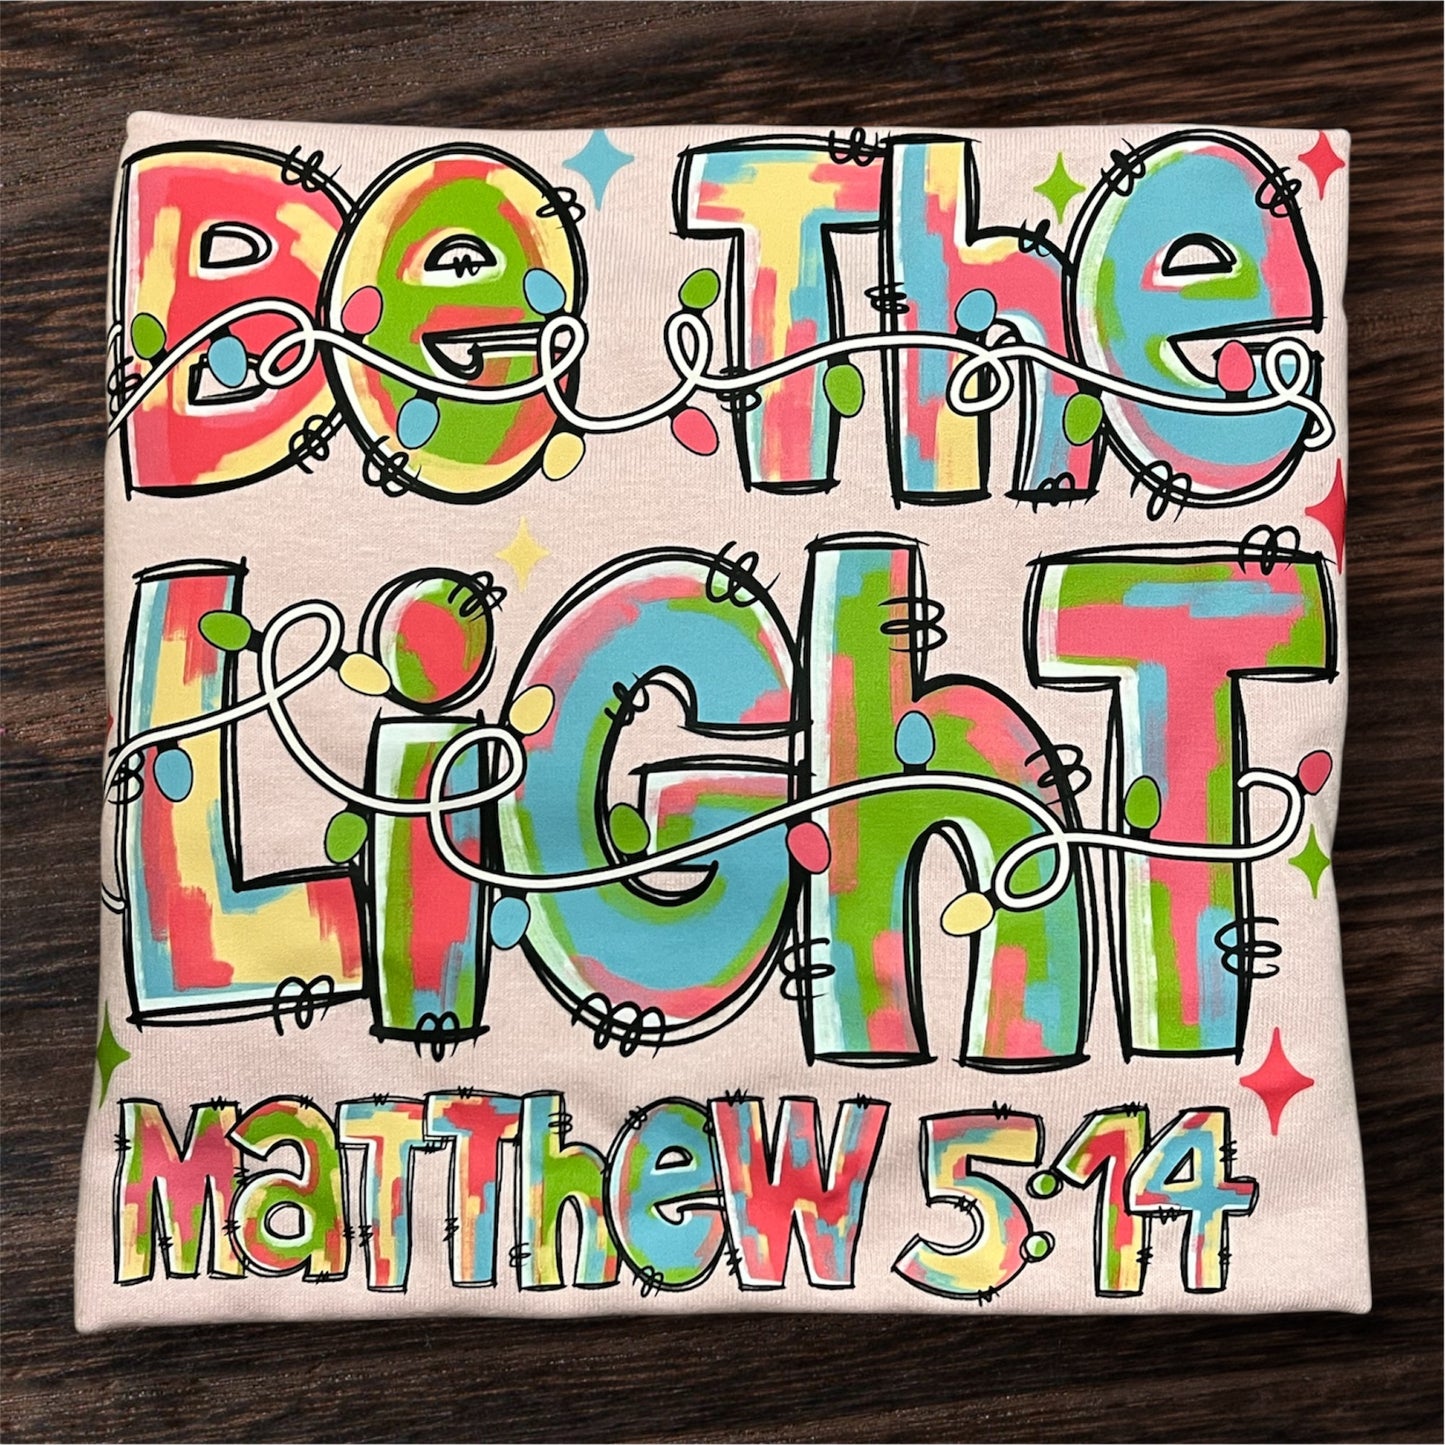 Be The
LighT
MaTThew 5:14